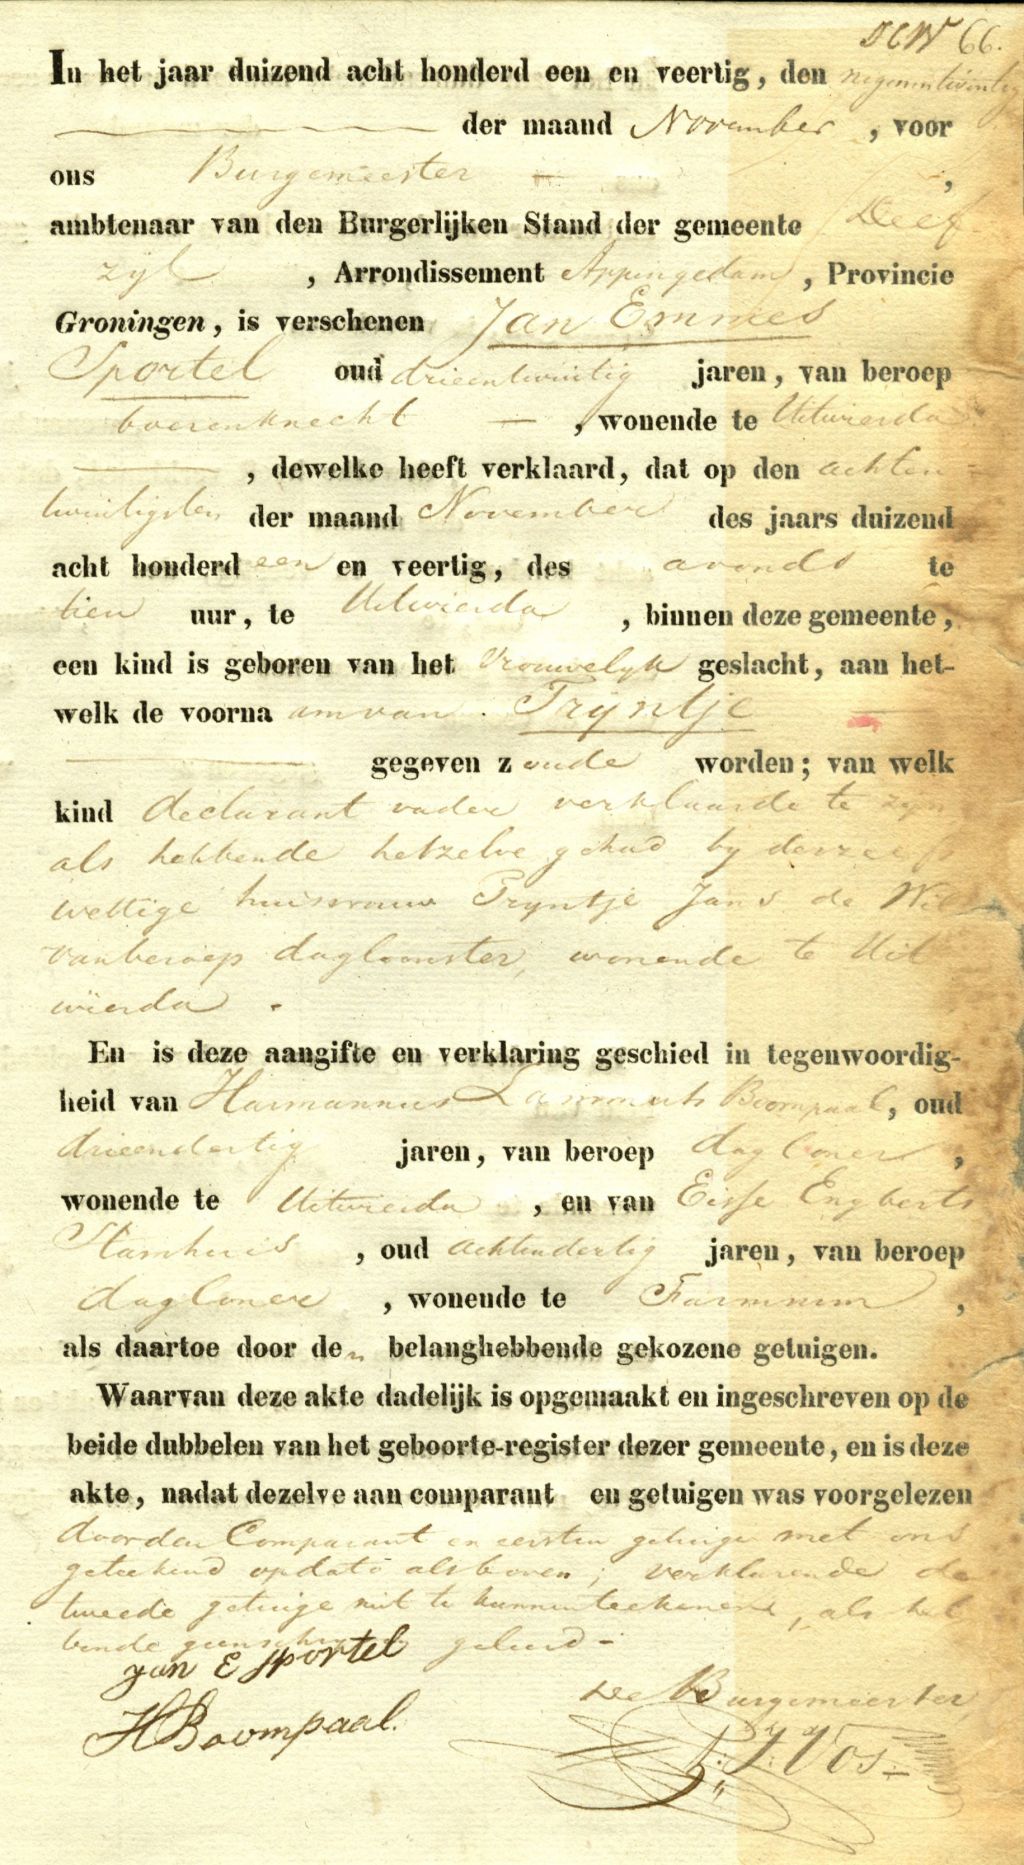 66.
In het jaar duizend acht honderd een en veertig, den negenentwintig
der maand November, voor
ons Burgemeester,
ambtenaar van den Burgerlijken Stand der gemeente Delf-
zijl, Arrondissement Appingedam, Provincie
Groningen, is verschenen Jan Emmes
Sportel oud drieentwintig jaren, van beroep
boerenknecht, wonende te Uitwierda
, dewelke heeft verklaard, dat op den achten-
twintigsten der maand November des jaars duizend
acht honderd een en veertig, des avonds te
tien uur, te Uitwierda, binnen deze gemeente,
een kind is geboren van het vrouwelyk geslacht, aan het-
welk de voornaam van Tryntje
gegeven zoude worden; van welk
kind declarant vader verklaarde te zyn
als hebbende hetzelve gehad by deszelfs
wettige huisvrouw Tryntje Jans de Wit
van beroep dagloonster, wonende te Uit
wierda.
En is deze aangifte en verklaring geschied in tegenwoordig-
heid van Harmannus Lammerts Boompaal, oud
drieendertig jaren, van beroep dagloner,
wonende te Uitwierda, en van Eisse Engberts
Stamhuis, oud achtendertig jaren, van beroep
dagloner, wonende te Farmsum,
als daartoe door den belanghebbende gekozene getuigen.
Waarvan deze akte dadelijk is opgemaakt en ingeschreven op de
beide dubbelen van het geboorte-register dezer gemeente, en is deze
akte, nadat dezelve aan comparant en getuigen was voorgelezen
door den Comparant en eersten getuige met ons
geteekend op dato als boven; verklarende de
tweede getuige niet te kunnen teekenen, als heb
bende geen geleerd-
Jan E Sportel
De Burgemeester
HBoompaal.
Vos